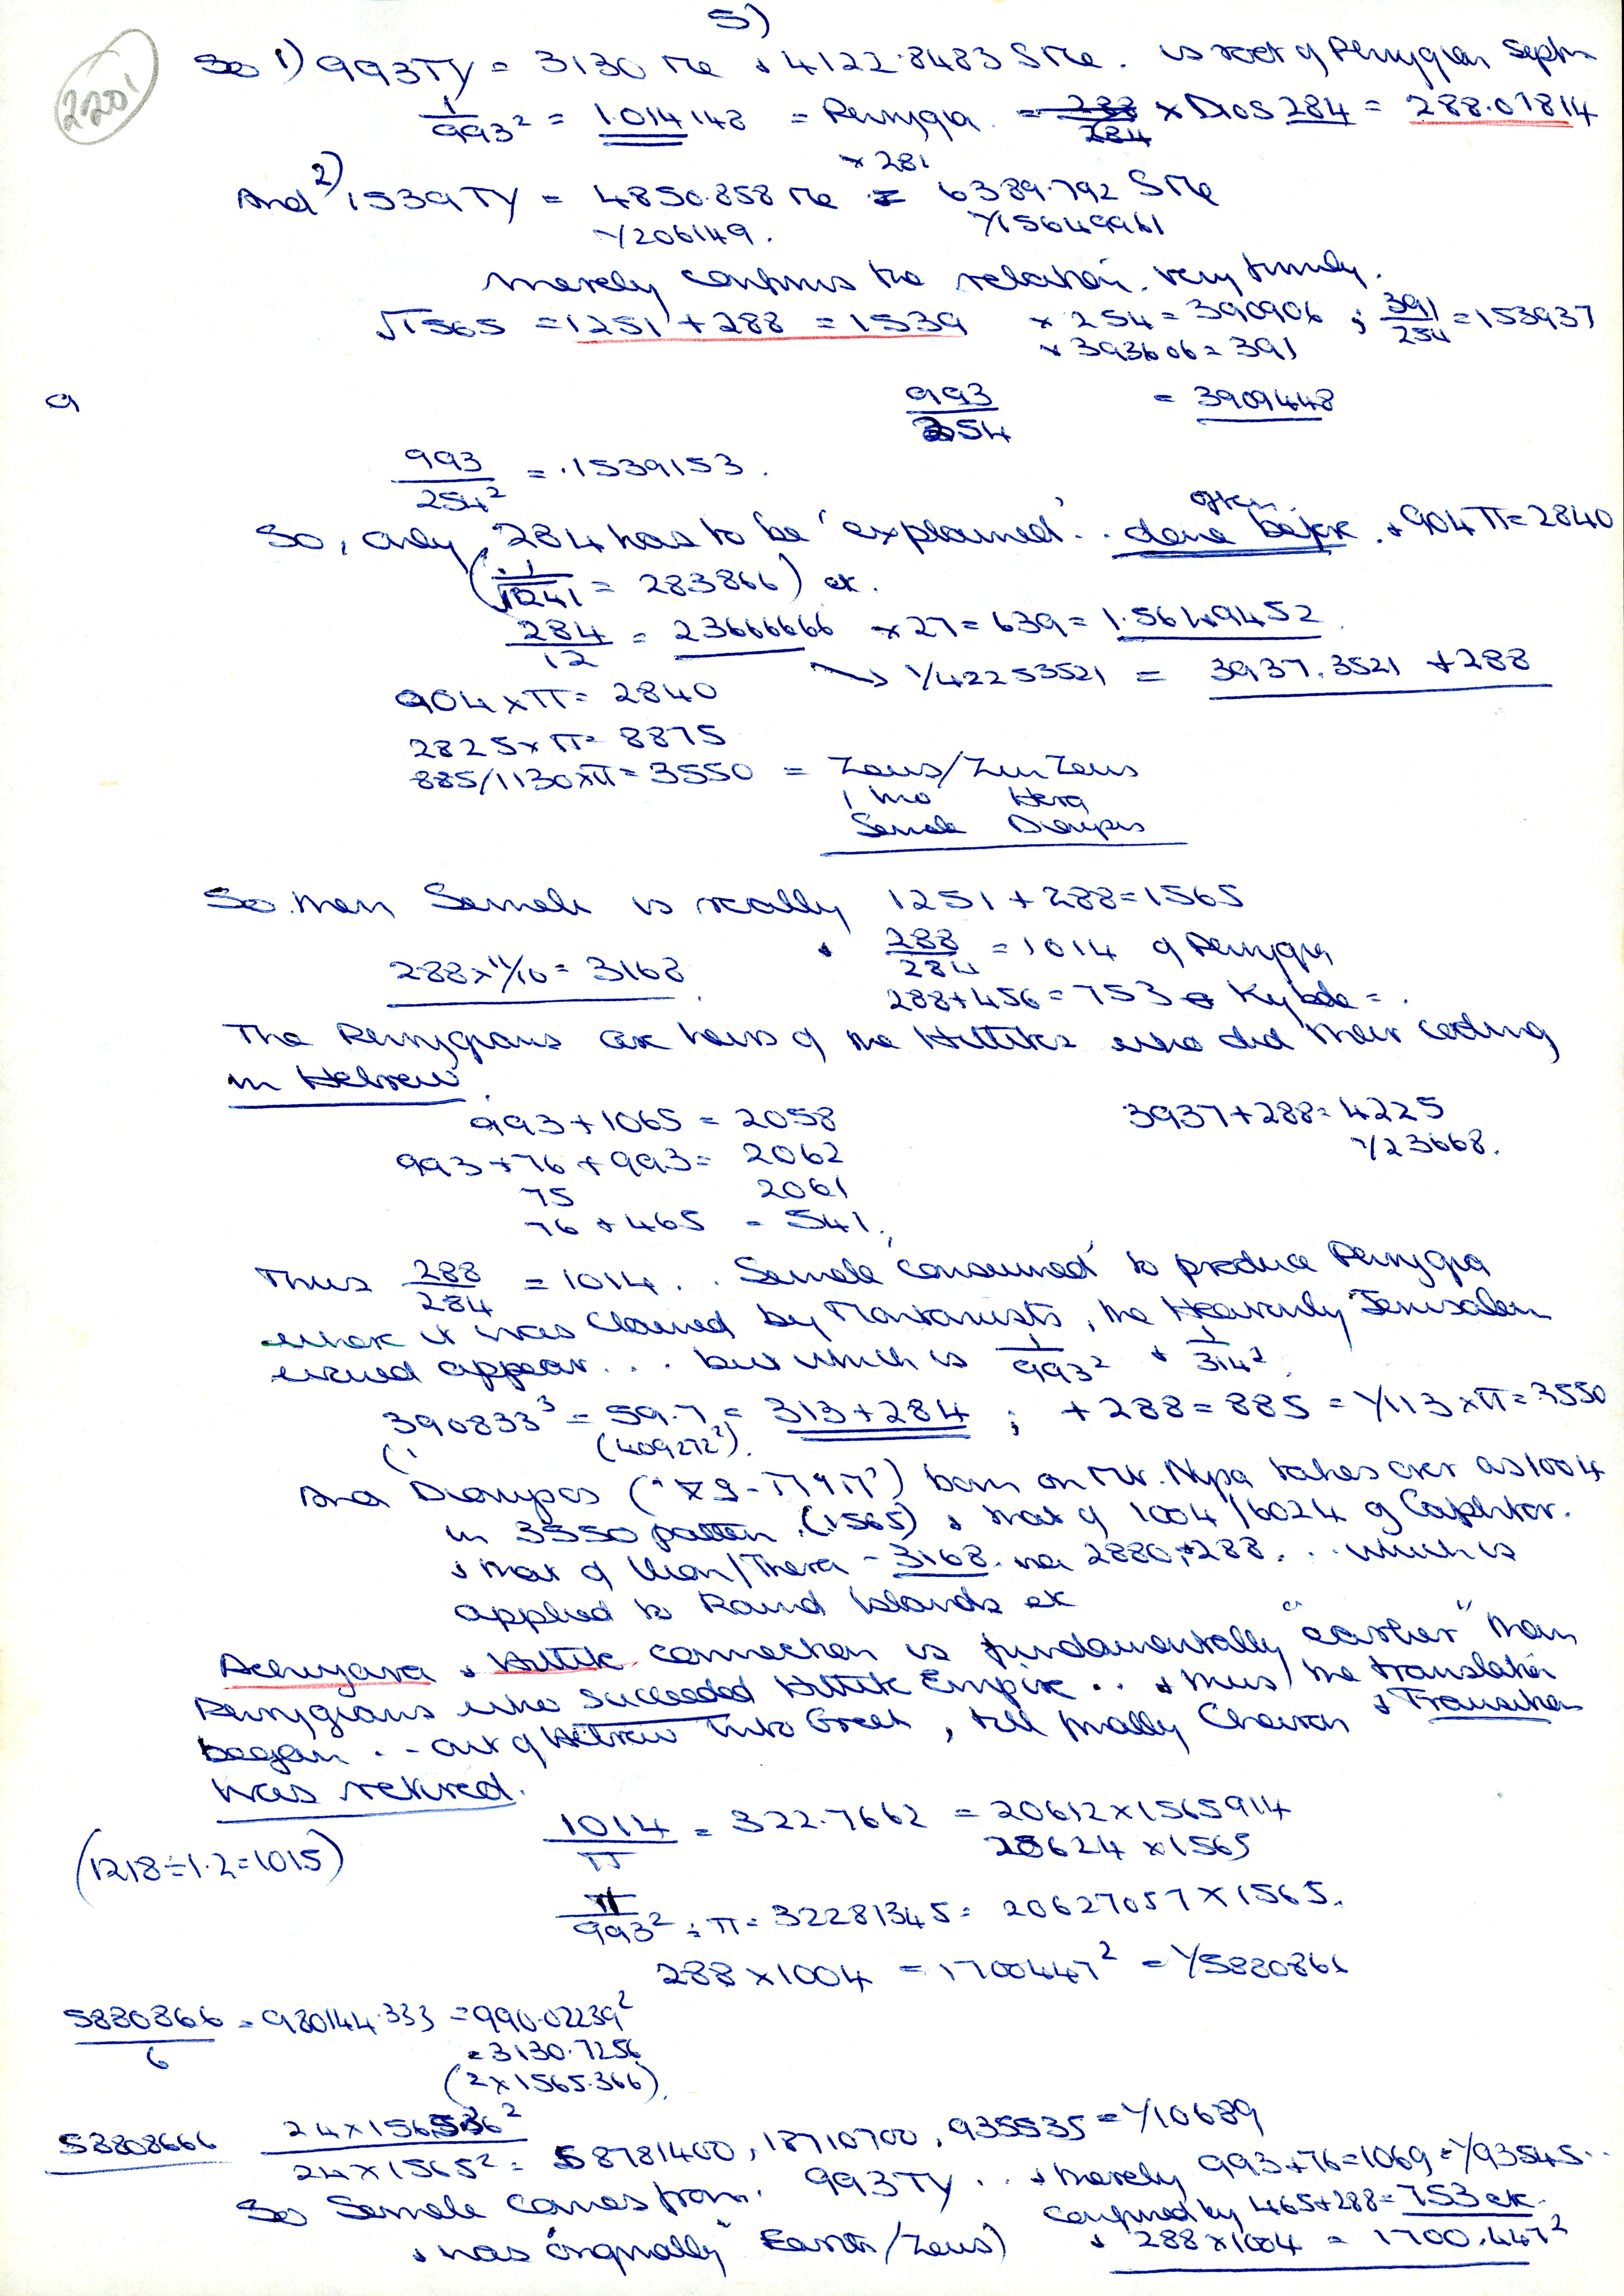 5)
2201
So 1) 993TY = 3130 Me & 4122.8483 SMe. is root of Phrygian
1/993² = 1.014148 = Phrygia = 288/284 × Dios 284 = 288.01814
× 281
And 2) 1539TY = 4850.858 Me = 6389.792 SMe
1/206149. 1/15649961
merely confirms the relation. very firmly.
√1565 = 1251 + 288 = 1539 × 254 = 390906 ; 391/254 = 153937
× 393606 = 391
9
993/254 = 3909448
993/254² = .1539153.
So, only 284 has to be 'explained'.. done often before. & 904π = 2840
= 283866) etc.
284/12 = 23666666 × 27 = 639 = 1.5649452
→ 1/42253521 = 3937.3521 + 288
904 × π = 2840
2825 × π = 8875
885/1130 × π = 3550 = Zeus/Zeus
Ino Hera
Semele
So then Semele is really 1251 + 288 = 1565
& 288/284 = 1014 of Phrygia
288 × 11/10 = 3168
288 + 456 = 753 Kybele = .
The Phrygians are heirs of the Hittites who did their coding
in Hebrew.
993 + 1065 = 2058
3937 + 288 = 4225
993 + 76 + 993 = 2062
1/23668.
75 2061
76 + 465 = 541.
Thus 288/284 = 1014 .. Semele 'consumed' to produce Phrygia
where it was claimed by Montanists, the Heavenly Jerusalem
would appear ... but which is 1/993² & 1/314².
390833³ = 59.7 = 313 + 284 ; + 288 = 885 = 1/113 × π = 3550
(409272²).
And Dionysos born on Mt. Nysa takes over as 1004
in 3550 pattern. (1565) & that of 1004/6024 of Caphtor.
& that of /Thera - 3168. 2880 + 288 ... which is
applied to Round Islands etc
& Hittite connection is fundamentally "earlier" than
Phrygians who succeeded Hittite Empire .. & thus the translation
& Transition
began .. out of Hebrew into Greek, till finally
was retired.
1014/π = 322.7662 = 20612 × 1565914
20624 × 1565
(1218 ÷ 1.2 = 1015)
π/993² ÷ π = 32281345 = 20627057 × 1565.
288 × 1004 = 1700447² = 1/5880866
5880866/6 = 980144.333 = 990.02239²
= 3130.7256
(2 × 1565.366)
58808666 24 × 1565² = 58781400, 18710700, 935535 = 1/10689
993 + 76 = 1069 = 1/93545..
So Semele comes from 993TY .. & merely
confirmed by 465 + 288 = 753 etc.
& was "originally" Earth/Zeus)
& 288 × 1004 = 1700.447²